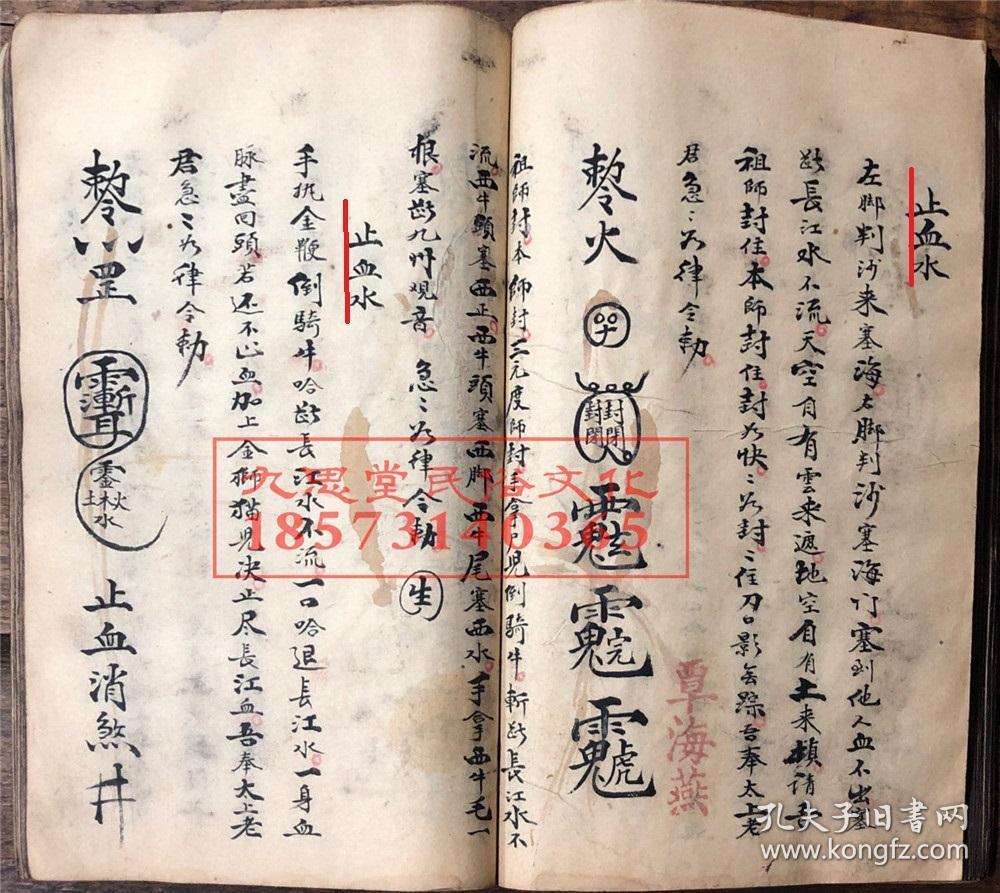 止血水
左脚判沙来塞海右脚判沙塞海门塞到他人血不出塞
断長江水不流天空自有雲来遮地空自有土来填請
祖師封住本師封住封如快〻如封〻住刀口影無踪吾奉太上老
君急〻如律令勅
火
封閉
封閉
祖師封本師封三元度師封手拿口児倒騎牛斬断長江水不
流西牛頭塞西正西牛頭塞西脚西牛尾塞西水手拿西牛毛一
根塞断九州观音 急〻如律令勅 生
止血水
手执金鞭倒騎牛哈断長江水不流一口哈退長江水一身血
脉盡回頭若还不止血加上金獅猫児决止尽長江血吾奉太上老
君急〻如律令勅
罡
止血消煞井
覃海燕
九思堂民俗文化
18573140365
孔夫子旧书网
www.kongfz.com